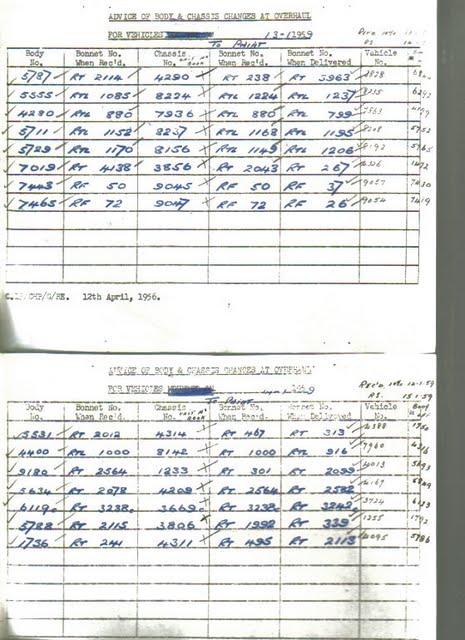 ADVICE OF BODY & CHASSIS CHANGES AT OVERHAUL
FOR VEHICLES 13-1-1959
TO PAINT
Body No. Bonnet No. When Rec'd. Chassis No. Bonnet No. When Rec'd. Bonnet No. When Delivered Vehicle No.
5787 RT 2114 4290 RT 238 RT 3963
5555 RTL 1085 8224 RTL 1224 RTL 1237 8235
4280 RTL 880 7936 RTL 880 RTL 799 7563
5711 RTL 1152 8237 RTL 1168 RTL 1195 8208 5752
5729 RTL 1170 8156 RTL 1149 RTL 1206 8192 5765
7019 RT 4138 3856 RT 2043 RT 267
7443 RF 50 9045 RF 50 RF 37 9057 7430
7465 RF 72 9047 RF 72 RF 26 9054 7419
12th April, 1956.
ADVICE OF BODY & CHASSIS CHANGES AT OVERHAUL
FOR VEHICLES 1959 REC'D. 12-1-59
TO PAINT 15.1.59
Body No. Bonnet No. When Rec'd. Chassis No. Bonnet No. When Rec'd. Bonnet No. When Delivered Vehicle No.
5531 RT 2012 4314 RT 467 RT 313 4388
4400 RTL 1000 8142 RT 1000 RTL 916 7960
9180 RT 2564 1233 RT 301 RT 2099 4013
5634 RT 2078 4209 RT 2564 RT 2582 4167
6119 RT 3238 3669 RT 3238 RT 3242 3724
5788 RT 2115 3806 RT 1992 RT 339 1255
1736 RT 241 4311 RT 495 RT 2113 4095 5786